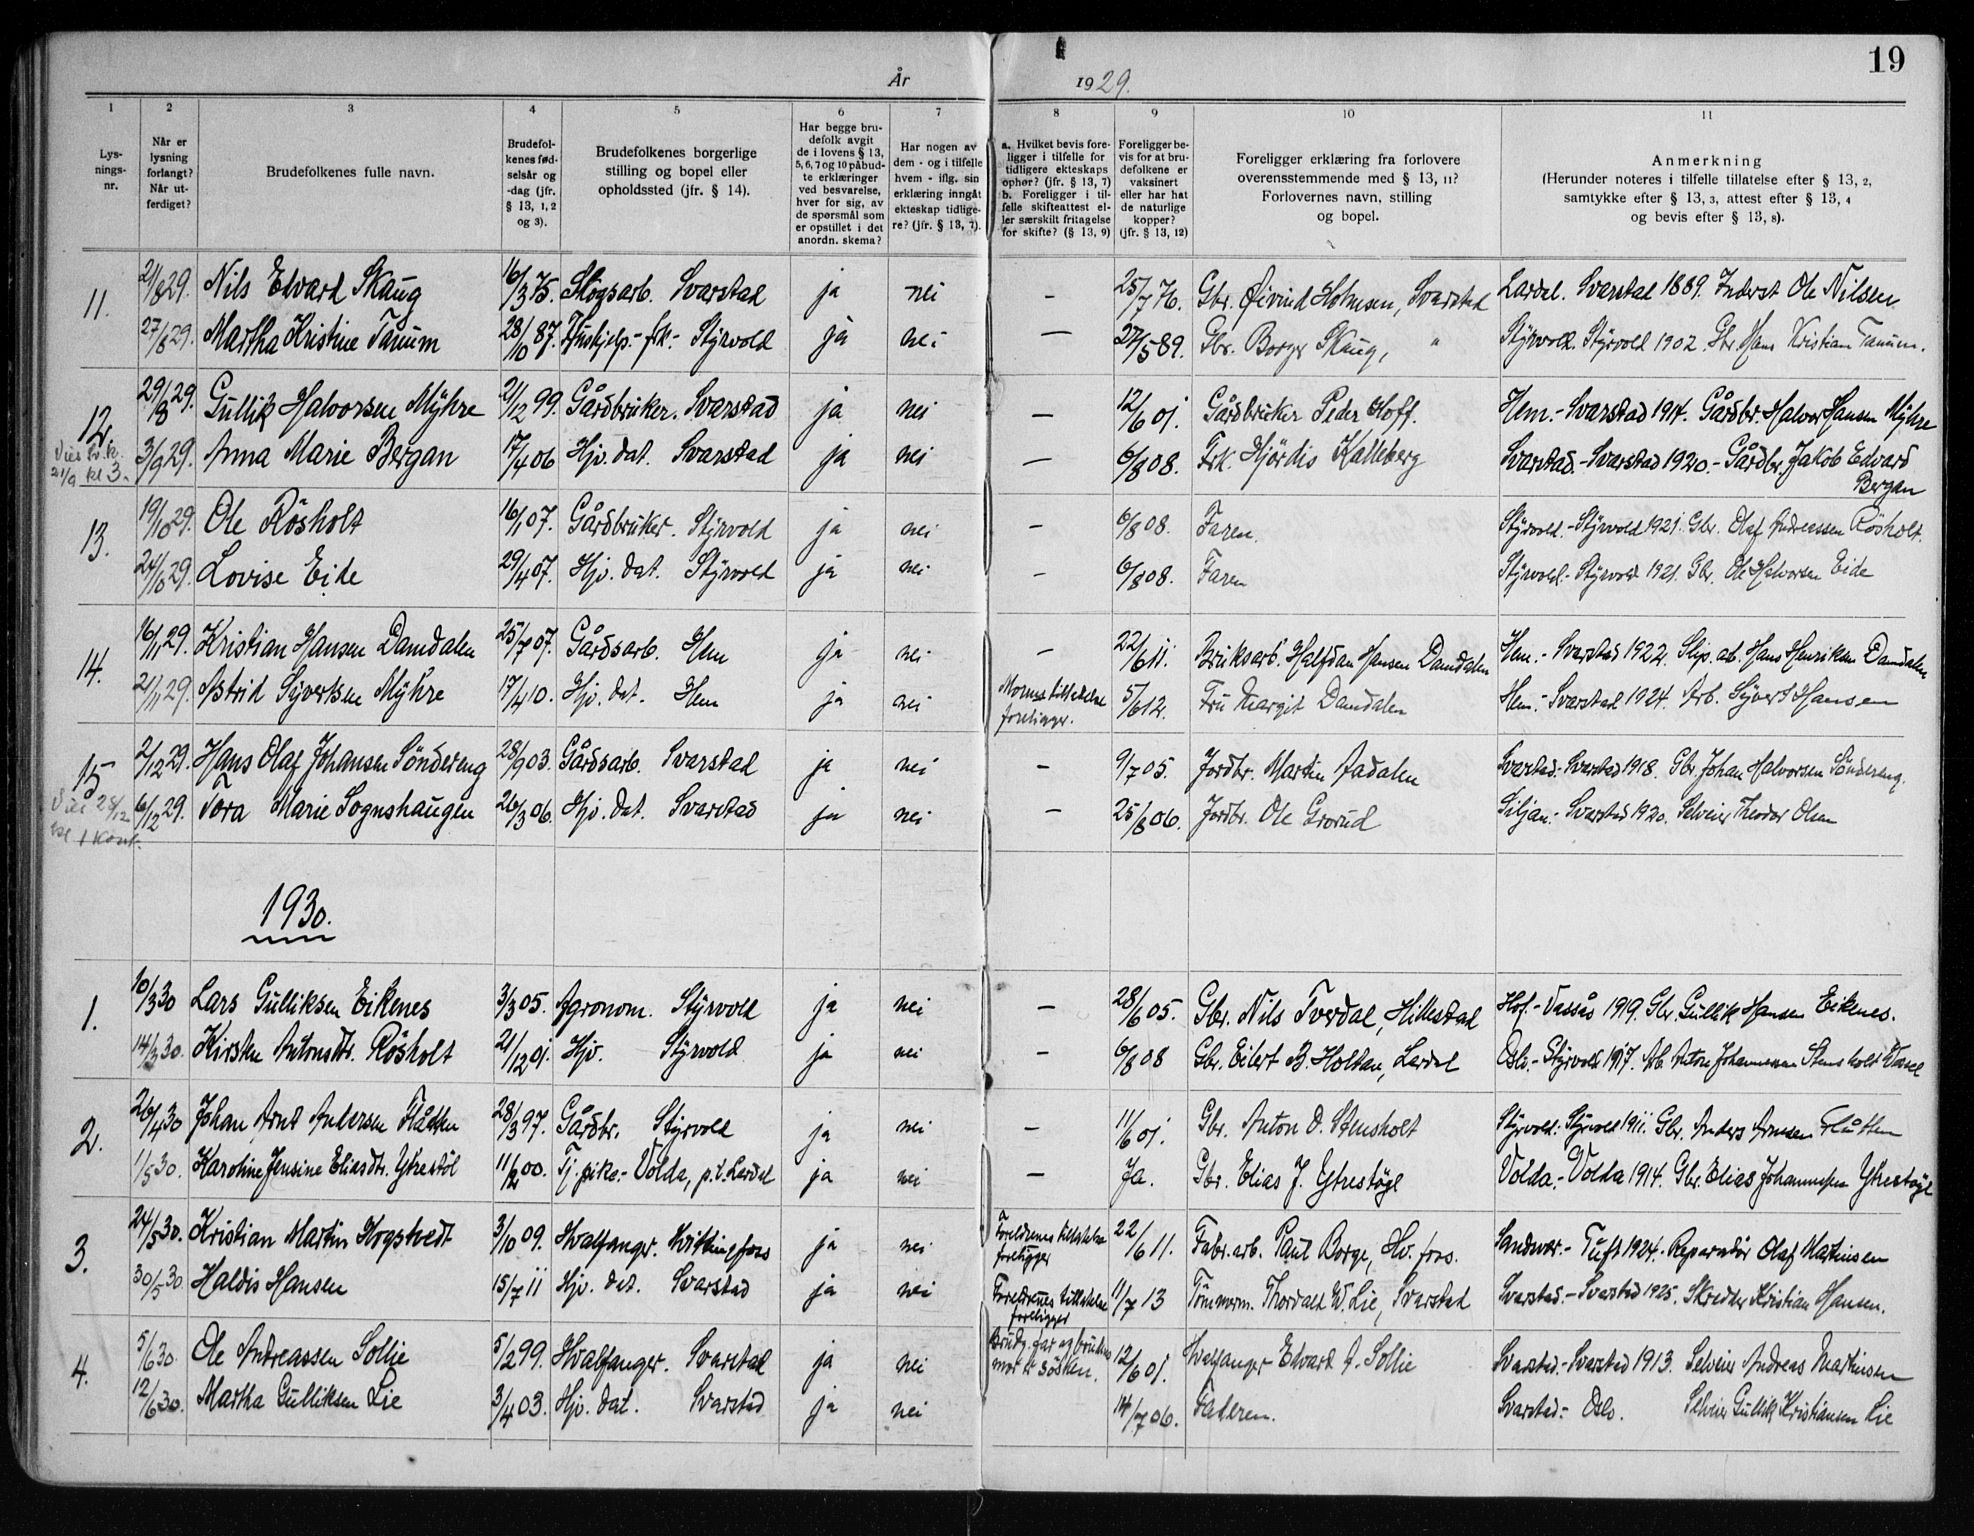 19
År 1929.
1 2 3 4 5 6 7 8 9 10 11
Lys-
nings-
nr.
Når er
lysning
forlangt?
Når ut-
ferdiget?
Brudefolkenes fulle navn.
Brudefol-
kenes fød-
selsår og
-dag (jfr.
§ 13, 1, 2
og 3).
Brudefolkenes borgerlige
stilling og bopel eller
opholdssted (jfr. § 14).
Har begge bru-
defolk avgit
de i lovens § 13,
5, 6, 7 og 10 påbud-
te erklæringer
ved besvarelse,
hver for sig, av
de spørsmål som
er opstillet i det
anordn. skema?
Har nogen av
dem - og i tilfelle
hvem - iflg. sin
erklæring inngåt
ekteskap tidlige-
re? (jfr. § 13, 7).
a. Hvilket bevis fore-
ligger i tilfelle for
tidligere ekteskaps
ophør? (jfr. § 13, 7)
b. Foreligger i til-
felle skifteattest el-
ler særskilt fritagelse
for skifte? (§ 13, 9)
Foreligger be-
vis for at bru-
defolkene er
vaksinert
eller har hat
de naturlige
kopper?
(jfr. § 13, 12)
Foreligger erklæring fra forlovere
overensstemmende med § 13, 11?
Forlovernes navn, stilling
og bopel.
Anmerkning
(Herunder noteres i tilfelle tillatelse efter § 13, 2,
samtykke efter § 13, 3, attest efter § 13, 4
og bevis efter § 13, 8).
11. 21/8 29. Nils Edvard Skaug 16/3 75. Skogsarb. Svarstad ja nei — 25/7 76. Gbr. Øivind Holmsen, Svarstad Lardal. Svarstad 1889. Inderst Ole Nilsen
27/8 29. Martha Kristine Tanum 28/10 87. Hushjelp.- frk.- Styrvold ja nei — 27/5 89. Gbr. Borger Skaug, " Styrvold. Styrvold 1902. Gbr. Hans Kristian Tanum.
12. 29/8 29. Gullik Halvorsen Myhre 21/12 99. Gårdbruker. Svarstad ja nei — 12/6 01. Gårdbruker Peder Hoff. Hem.- Svarstad 1914. Gårdbr. Halvor Hansen Myhre
21/9 kl 3. 3/9 29. Anna Marie Bergan 17/4 06 Hjv. dat. Svarstad ja nei — 6/8 08. Frk. Hjördis Kalleberg Svarstad.- Svarstad 1920.- Gårdbr. Jakob Edvard
Bergan
13. 19/10 29. Ole Rösholt 16/1 07. Gårdbruker. Styrvold ja nei — 6/8 08. Faren. Styrvold.- Styrvold 1921. Gbr. Olaf Andreassen Rösholt.
24/10 29. Lovise Eide 29/4 07. Hjv. dat. Styrvold ja nei — 6/8 08. Faren Styrvold.- Styrvold 1921. Gbr. Ole Halvorsen Eide
14. 16/11 29. Kristian Hansen Damdalen 25/7 07. Gårdsarb. Hem ja nei — 22/6 11. Bruksarb. Halfdan Hansen Damdalen Hem.- Svarstad 1922. Slip. arb. Hans Henriksen Damdalen
21/11 29. Astrid Syvertsen Myhre 17/4 10. Hjv. dat. Hem ja nei Mornes tillatelse 5/6 12. Fru Margit Damdalen Hem.- Svarstad 1924. Arb. Syvert Hansen
foreligger.
15 2/12 29. Hans Olaf Johansen Söndereng 28/9 03. Gårdsarb. Svarstad ja nei — 9/7 05. Jordbr. Martin Aadalen Svarstad.- Svarstad 1918. Gbr. Johan Halvorsen Söndereng.
Vies 28/12 6/12 29. Tora Marie Sognshaugen 26/3 06. Hjv. dat. Svarstad ja nei — 25/8 06. Jordbr. Ole Grorud Siljan.- Svarstad 1920. Selveier Theodor Olsen
kl 1 kont.
1930.
1. 10/3 30 Lars Gulliksen Eikenes 3/3 05. Agronom. Styrvold ja nei — 28/6 05. Gbr. Nils Tverdal, Hillestad Hof.- Vassås 1919. Gbr. Gullik Hansen Eikenes.
14/3 30. Kirsten Antonsdtr. Rösholt 21/12 01. Hjv. Styrvold ja nei — 6/8 08 Gbr. Eilert B. Holtan, Lardal Oslo.- Styrvold 1917. Arb. Anton Johannessen Stensholt
2. 26/4 30 Johan Arnt Andersen Flåtten 28/3 97. Gårdbr. Styrvold ja nei — 11/6 01. Gbr. Anton O. Stensholt Styrvold. Styrvold 1911. Gbr. Anders Arnesen Flåtten
1/5 30. Karoline Jensine Eliasdtr. Ytrestöl 11/2 00. Tj. pike.- Volda, p.t. Lardal ja nei — Ja. Gbr. Elias J. Ytrestöyl Volda.- Volda 1914. Gbr. Elias Johannessen Ytrestöyl
3. 24/5 30. Kristian Martin Hogstvedt 3/10 09. Hvalfanger. Hvittingfoss ja nei Foreldrenes tillatelse 22/6 11. Fabr. arb. Paul Borge, Hv. foss. Sandsvær.- Tuft 1924. Reparatör Olaf Martinsen
foreligger
30/5 30 Haldis Hansen 15/7 11 Hjv. dat. Svarstad ja nei Foreldrenes tillatelse 11/7 13 Tömmerm. Thorvald W. Lie, Svarstad Svarstad.- Svarstad 1925. Skredder Kristian Hansen.
foreligger
4. 5/6 30. Ole Andreassen Sollie 5/2 99. Hvalfanger. Svarstad ja nei Brudg. far og brudens 12/6 01. Hvalfanger Edvard A. Sollie Svarstad.- Svarstad 1913. Selveier Andreas Martinsen
mor er sösken.
12/6 30. Martha Gulliksen Lie 3/4 03. Hjv. dat. Svarstad ja nei 14/7 06. Faderen. Svarstad.- Oslo. Selveier Gullik Kristiansen Lie